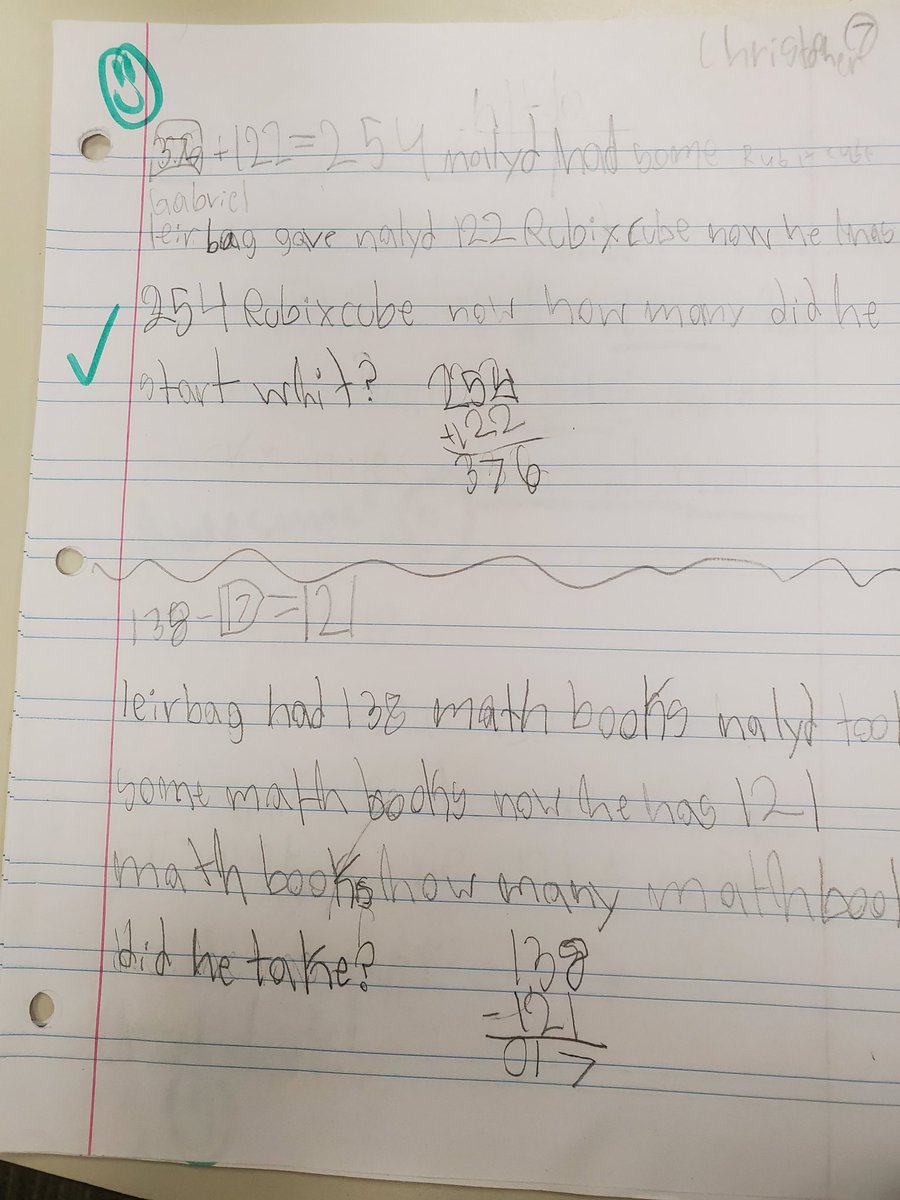 Christopher 7
376 + 122 = 254 nalyd had some Rubix cube
Gabriel
leirbag gave nalyd 122 Rubixcube now he has
254 Rubixcube now how many did he
start whit?
254
+122
376
138 - 17 = 121
leirbag had 138 math books nalyd took
some math books now he has 121
math books how many mathbook
did he take?
138
-121
017